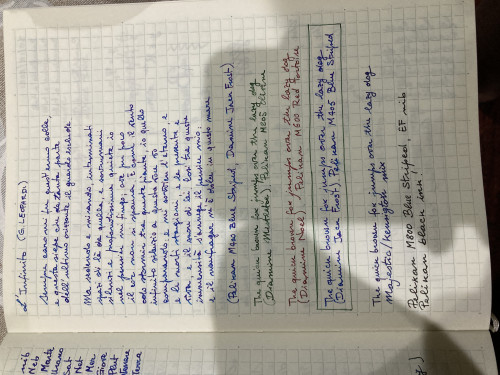 L'Infinito (G. LEOPARDI)
Sempre caro mi fu quest'ermo colle
e questa siepe che da tanta parte
dell'ultimo orizzonte il guardo esclude
Ma sedendo e mirando, interminati
spazi di là da quella, e sovrumani
silenzi e profondissima quiete io
nel pensier mi fingo, ove per poco
il cor non si spaura. E come il vento
odo stormir tra queste piante, io quello
infinito silenzio a questa voce vo
comparando: e mi sovvien l'eterno e
le morti stagioni, e la presente e
viva e il suon di lei. Così tra questa
immensità s'annega il pensier mio
e il naufragar m'è dolce in questo mare
(Pelikan M400 Blue Striped, Diamine Jack Frost)
The quick brown fox jumps over the lazy dog
(Diamine Mistletoe) Pelikan M805
The quick brown fox jumps over the lazy dog
(Diamine Noel) Pelikan M600 Red Tortoise
The quick brown fox jumps over the lazy dog
(Diamine Jack Frost) Pelikan M405 Blue Striped
The quick brown fox jumps over the lazy dog
Majestic/Kensington mix
Pelikan M800 Blue Striped, EF nib
Pelikan black ink,
nib
Neb
Monte
Sat
Net
Mer
Giove
Plut
Venere
Terra